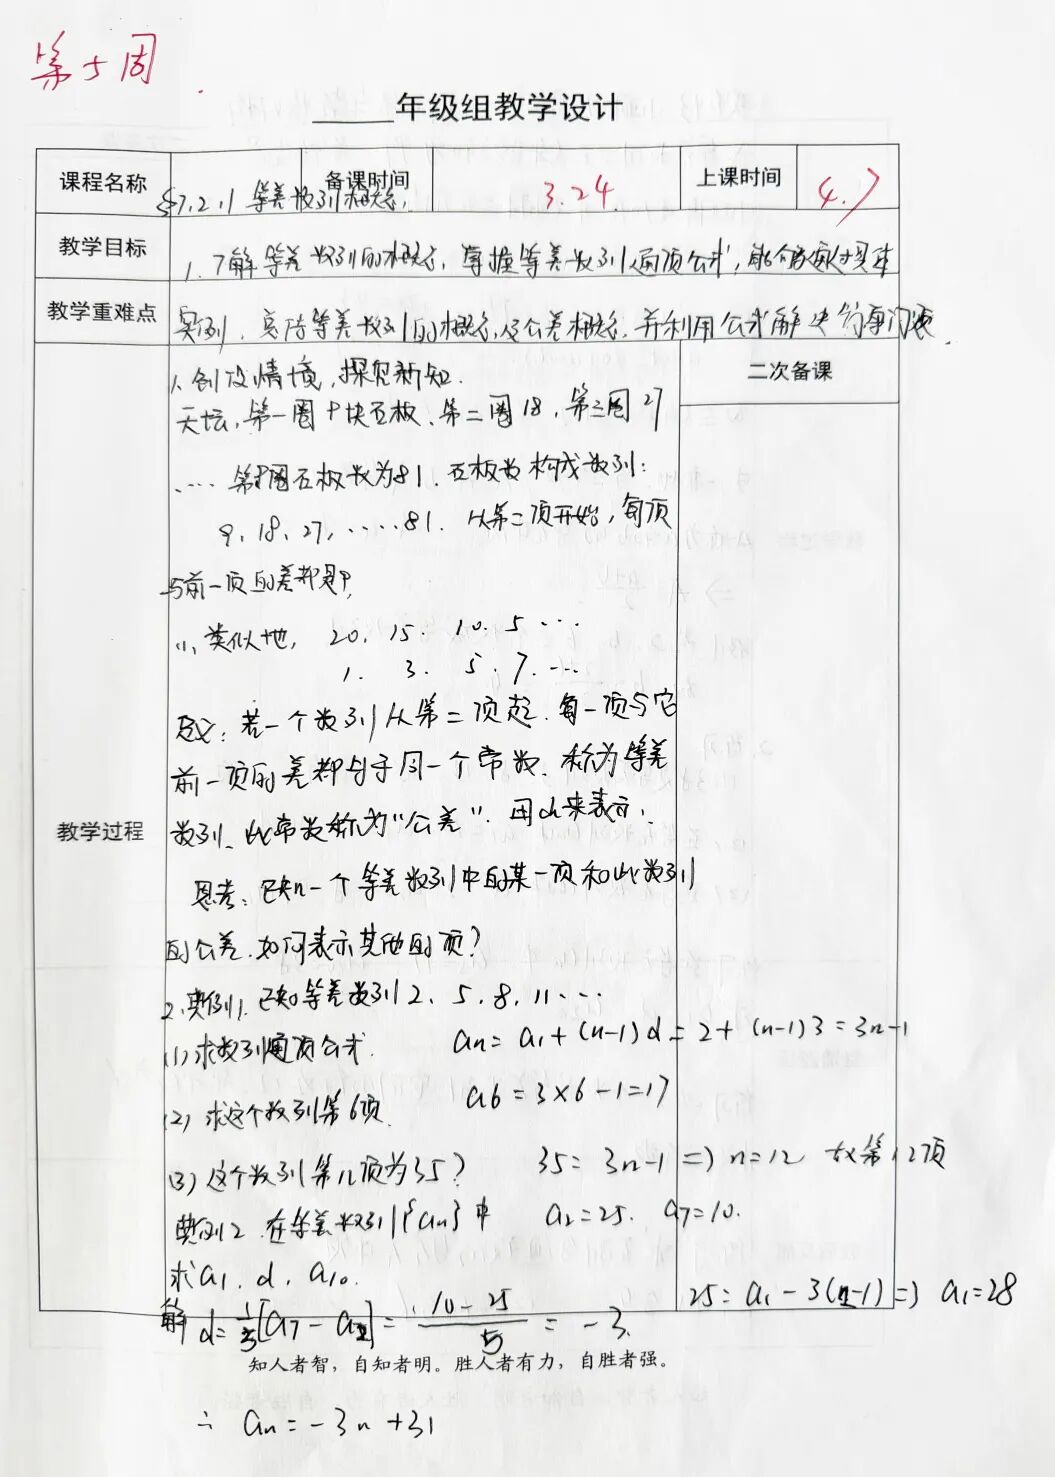 第七周
年级组教学设计
课程名称 §7.2.1 等差数列概念. 备课时间 3.24. 上课时间 4.7
教学目标 1.了解等差数列的概念,掌握等差数列通项公式,能够
教学重难点 实例,总结等差数列的概念,及公差概念.并利用公式解决
教学过程
二次备课
1.创设情境,探究新知.
天坛,第一圈9块石板、第二圈18,第三圈27
…… 第9圈石板数为81.石板数构成数列:
9、18、27,……81. 从第二项开始,每项
与前一项的差都是9,
(1)类似地, 20. 15. 10. 5 …
1. 3. 5. 7. …
定义:若一个数列从第二项起.每一项与它
前一项的差都等于同一个常数、称为等差
数列、此常数称为“公差”.用d来表示.
思考:已知一个等差数列中的某一项和此数列
的公差.如何表示其他的项?
2.典例1.已知等差数列2、5、8、11…
(1)求数列通项公式. an=a1+(n-1)d=2+(n-1)3=3n-1
(2)求这个数列第6项 a6=3×6-1=17
(3)这个数列第几项为35? 35=3n-1⇒n=12 故第12项
典例2.在等差数列{an}中 a2=25. a7=10.
求a1.d.a10.
解 d=1/5[a7-a2]=(10-25)/5=-3. 25=a1-3(2-1)⇒a1=28
知人者智,自知者明。胜人者有力,自胜者强。
∴ an=-3n+31